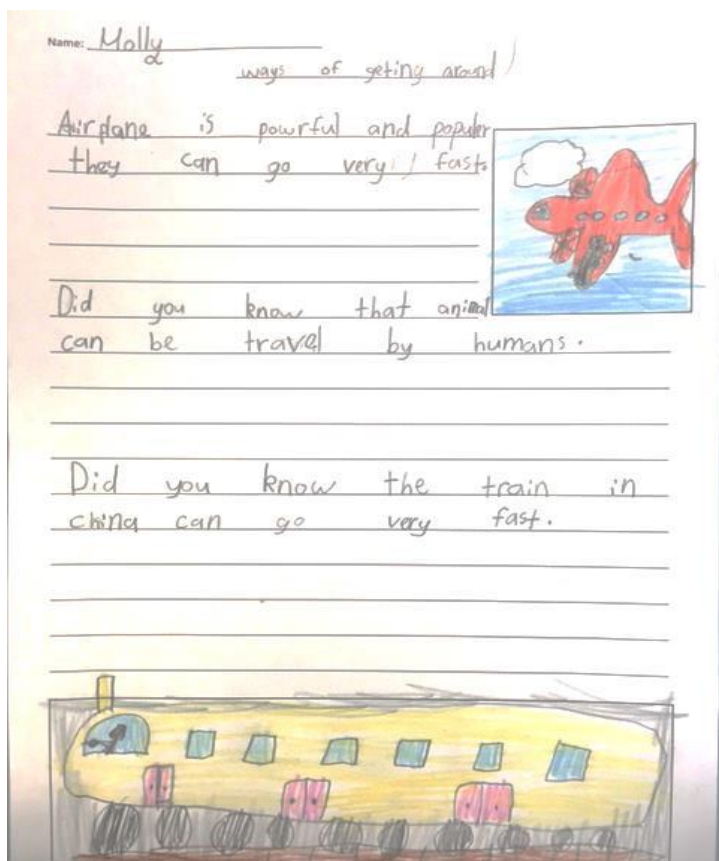 Name: Molly
ways of geting around
Airplane is powrful and populer
they can go very fast.
Did you know that animal
can be travel by humans.
Did you know the train in
china can go very fast.